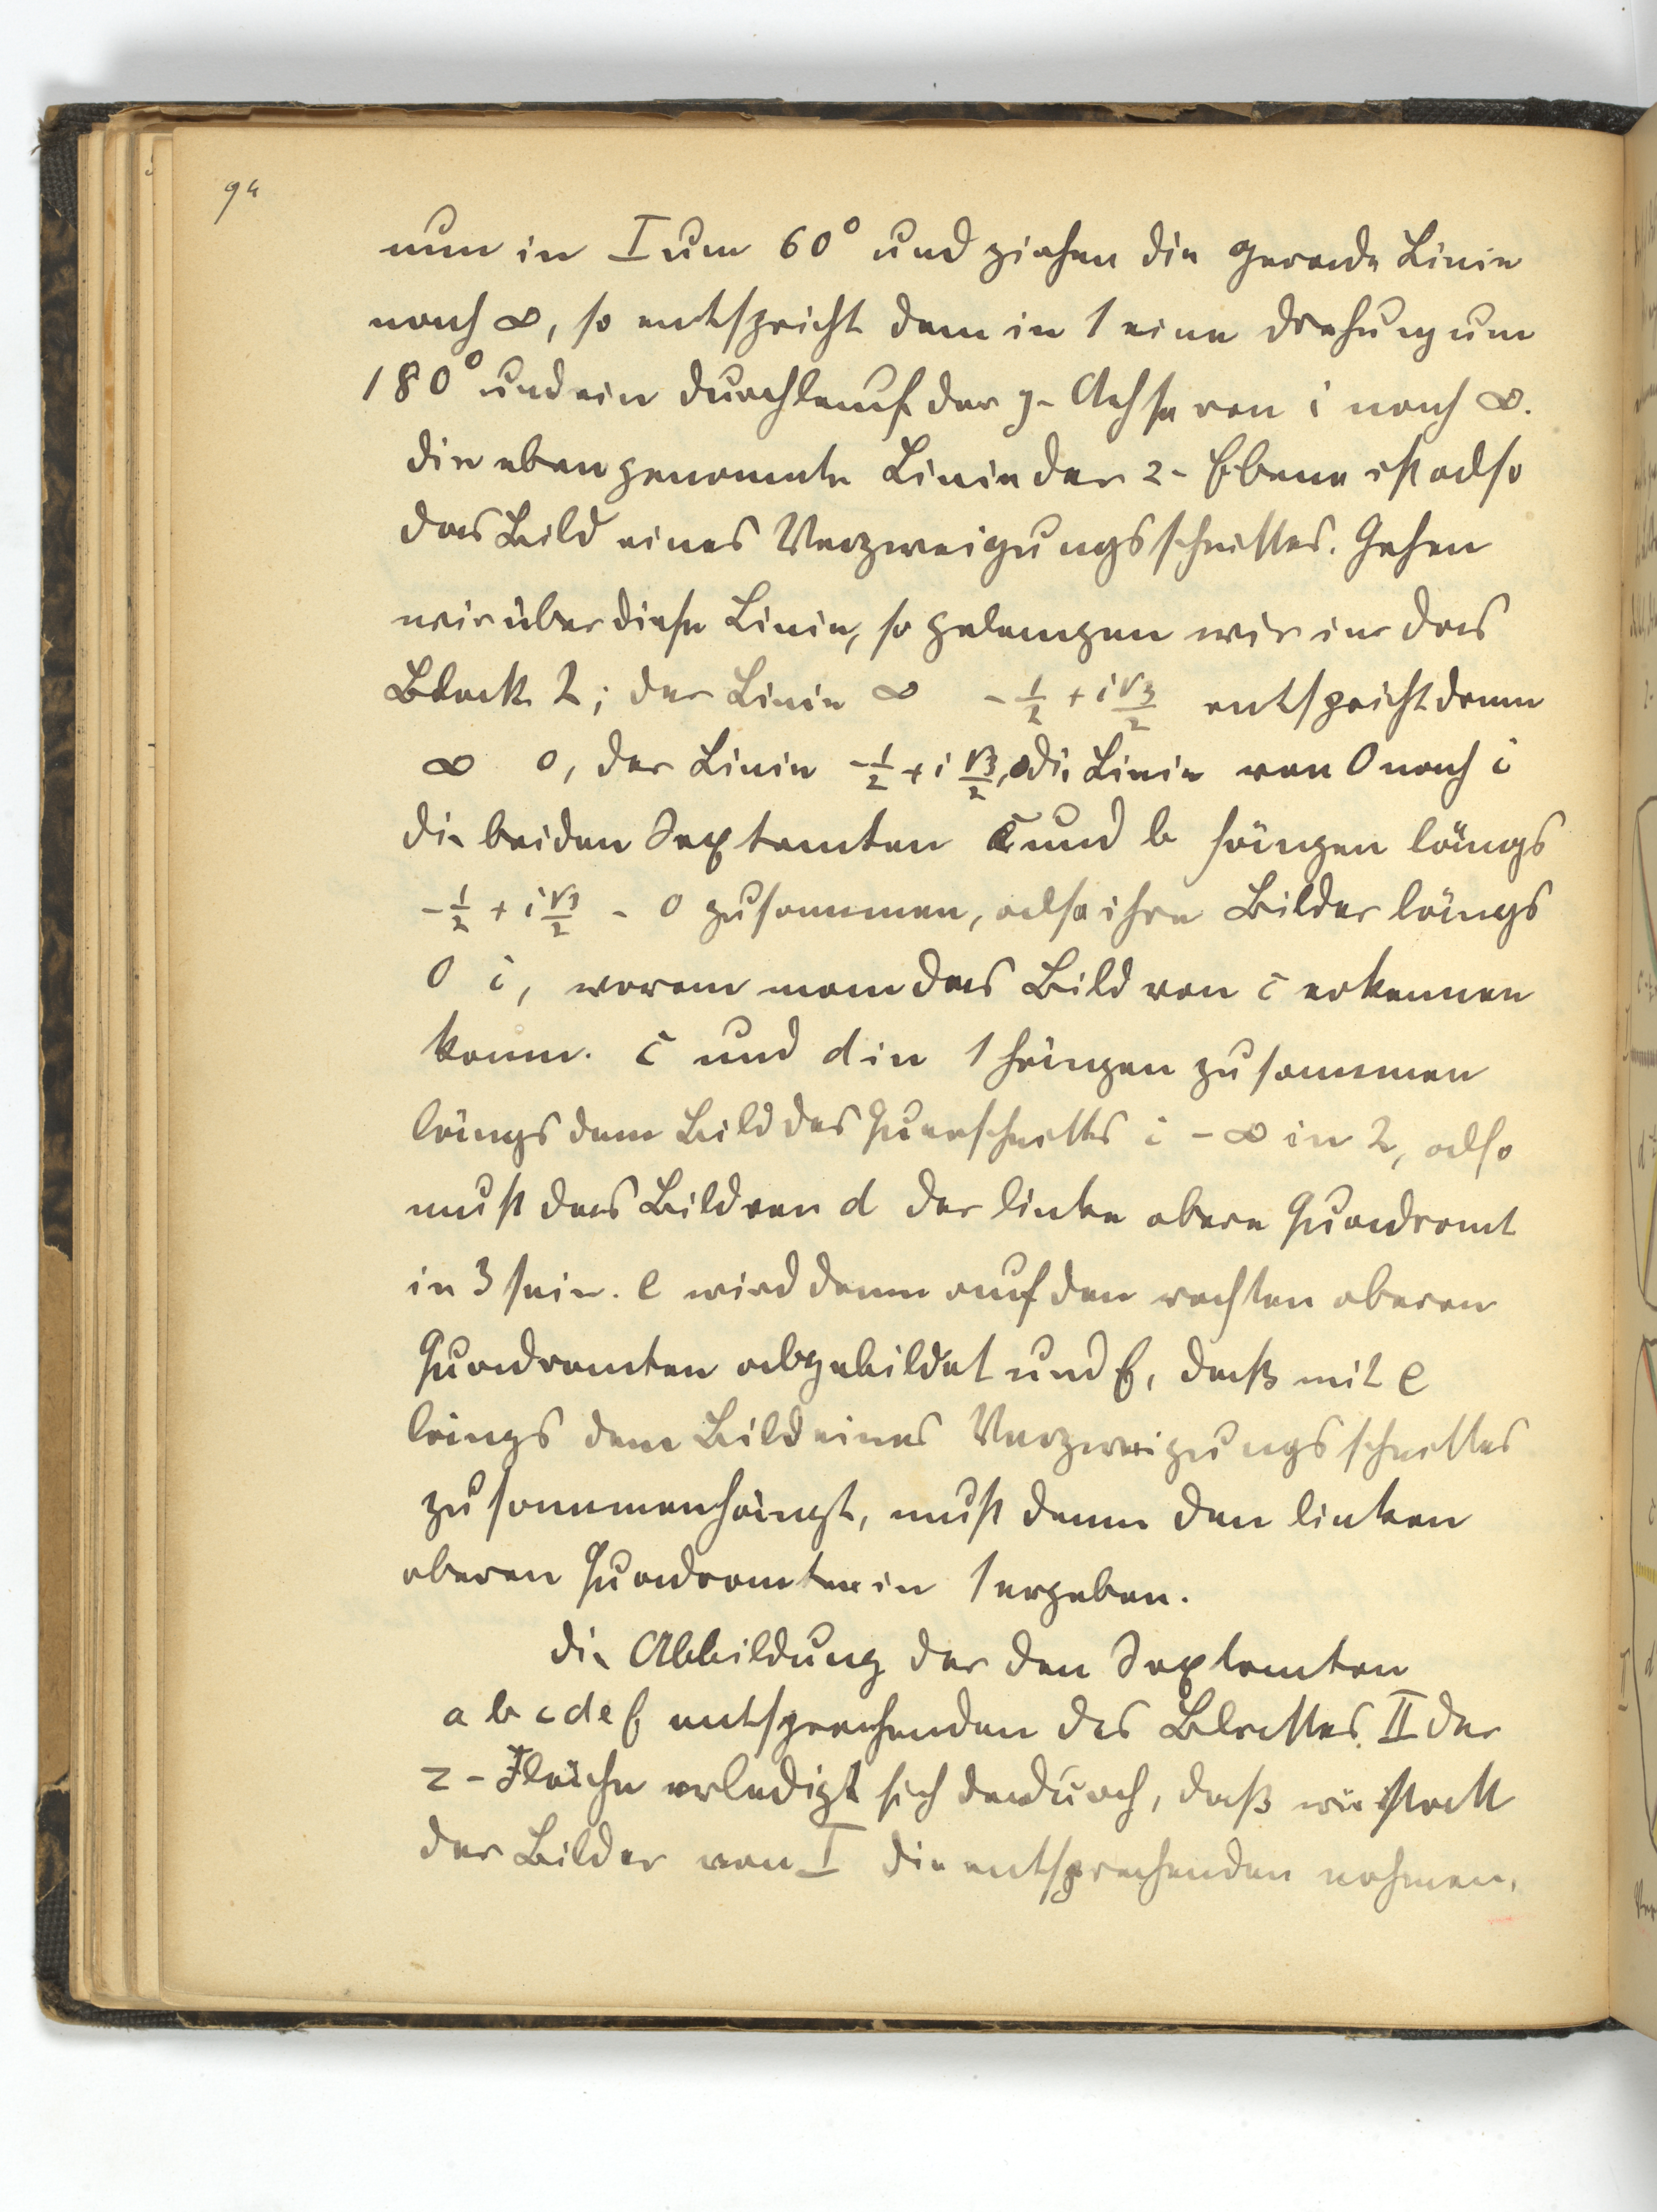 94
nun in I um 60° und ziehen die gerade Linie
nach ∞, so entspricht dem in 1 eine Drehung um
180° und ein Durchlauf der y-Achse von i nach ∞.
die eben genannte Linie der z-Ebene ist also
das Bild eines Verzweigungsschnittes. Gehen
wir über diese Linie, so gelangen wir in das
Blatt 2; der Linie ∞ -1/2 + i√3/2 entspricht dann
∞ 0, der Linie -1/2 + i √3/2, 0 die Linie von 0 nach i
die beiden Sextanten c und b hängen längs
-1/2 + i √3/2 - 0 zusammen, also ihre Bilder längs
0 i, woran man das Bild von c erkennen
kann. c und d in 1 hängen zusammen
längs dem Bild des Querschnitts i - ∞ in 2, also
muß das Bild von d der linke obere Quadrant
in 3 sein. e wird dann auf den rechten oberen
Quadranten abgebildet und f, daß mit e
längs dem Bild eines Verzweigungsschnittes
zusammenhängt, muß dann den linken
oberen Quadranten in 1 ergeben.
die Abbildung der den Sextanten
a b c d e f entsprechenden des Blattes II der
z-Fläche erledigt sich dadurch, daß wir statt
der Bilder von I die entsprechenden nehmen,